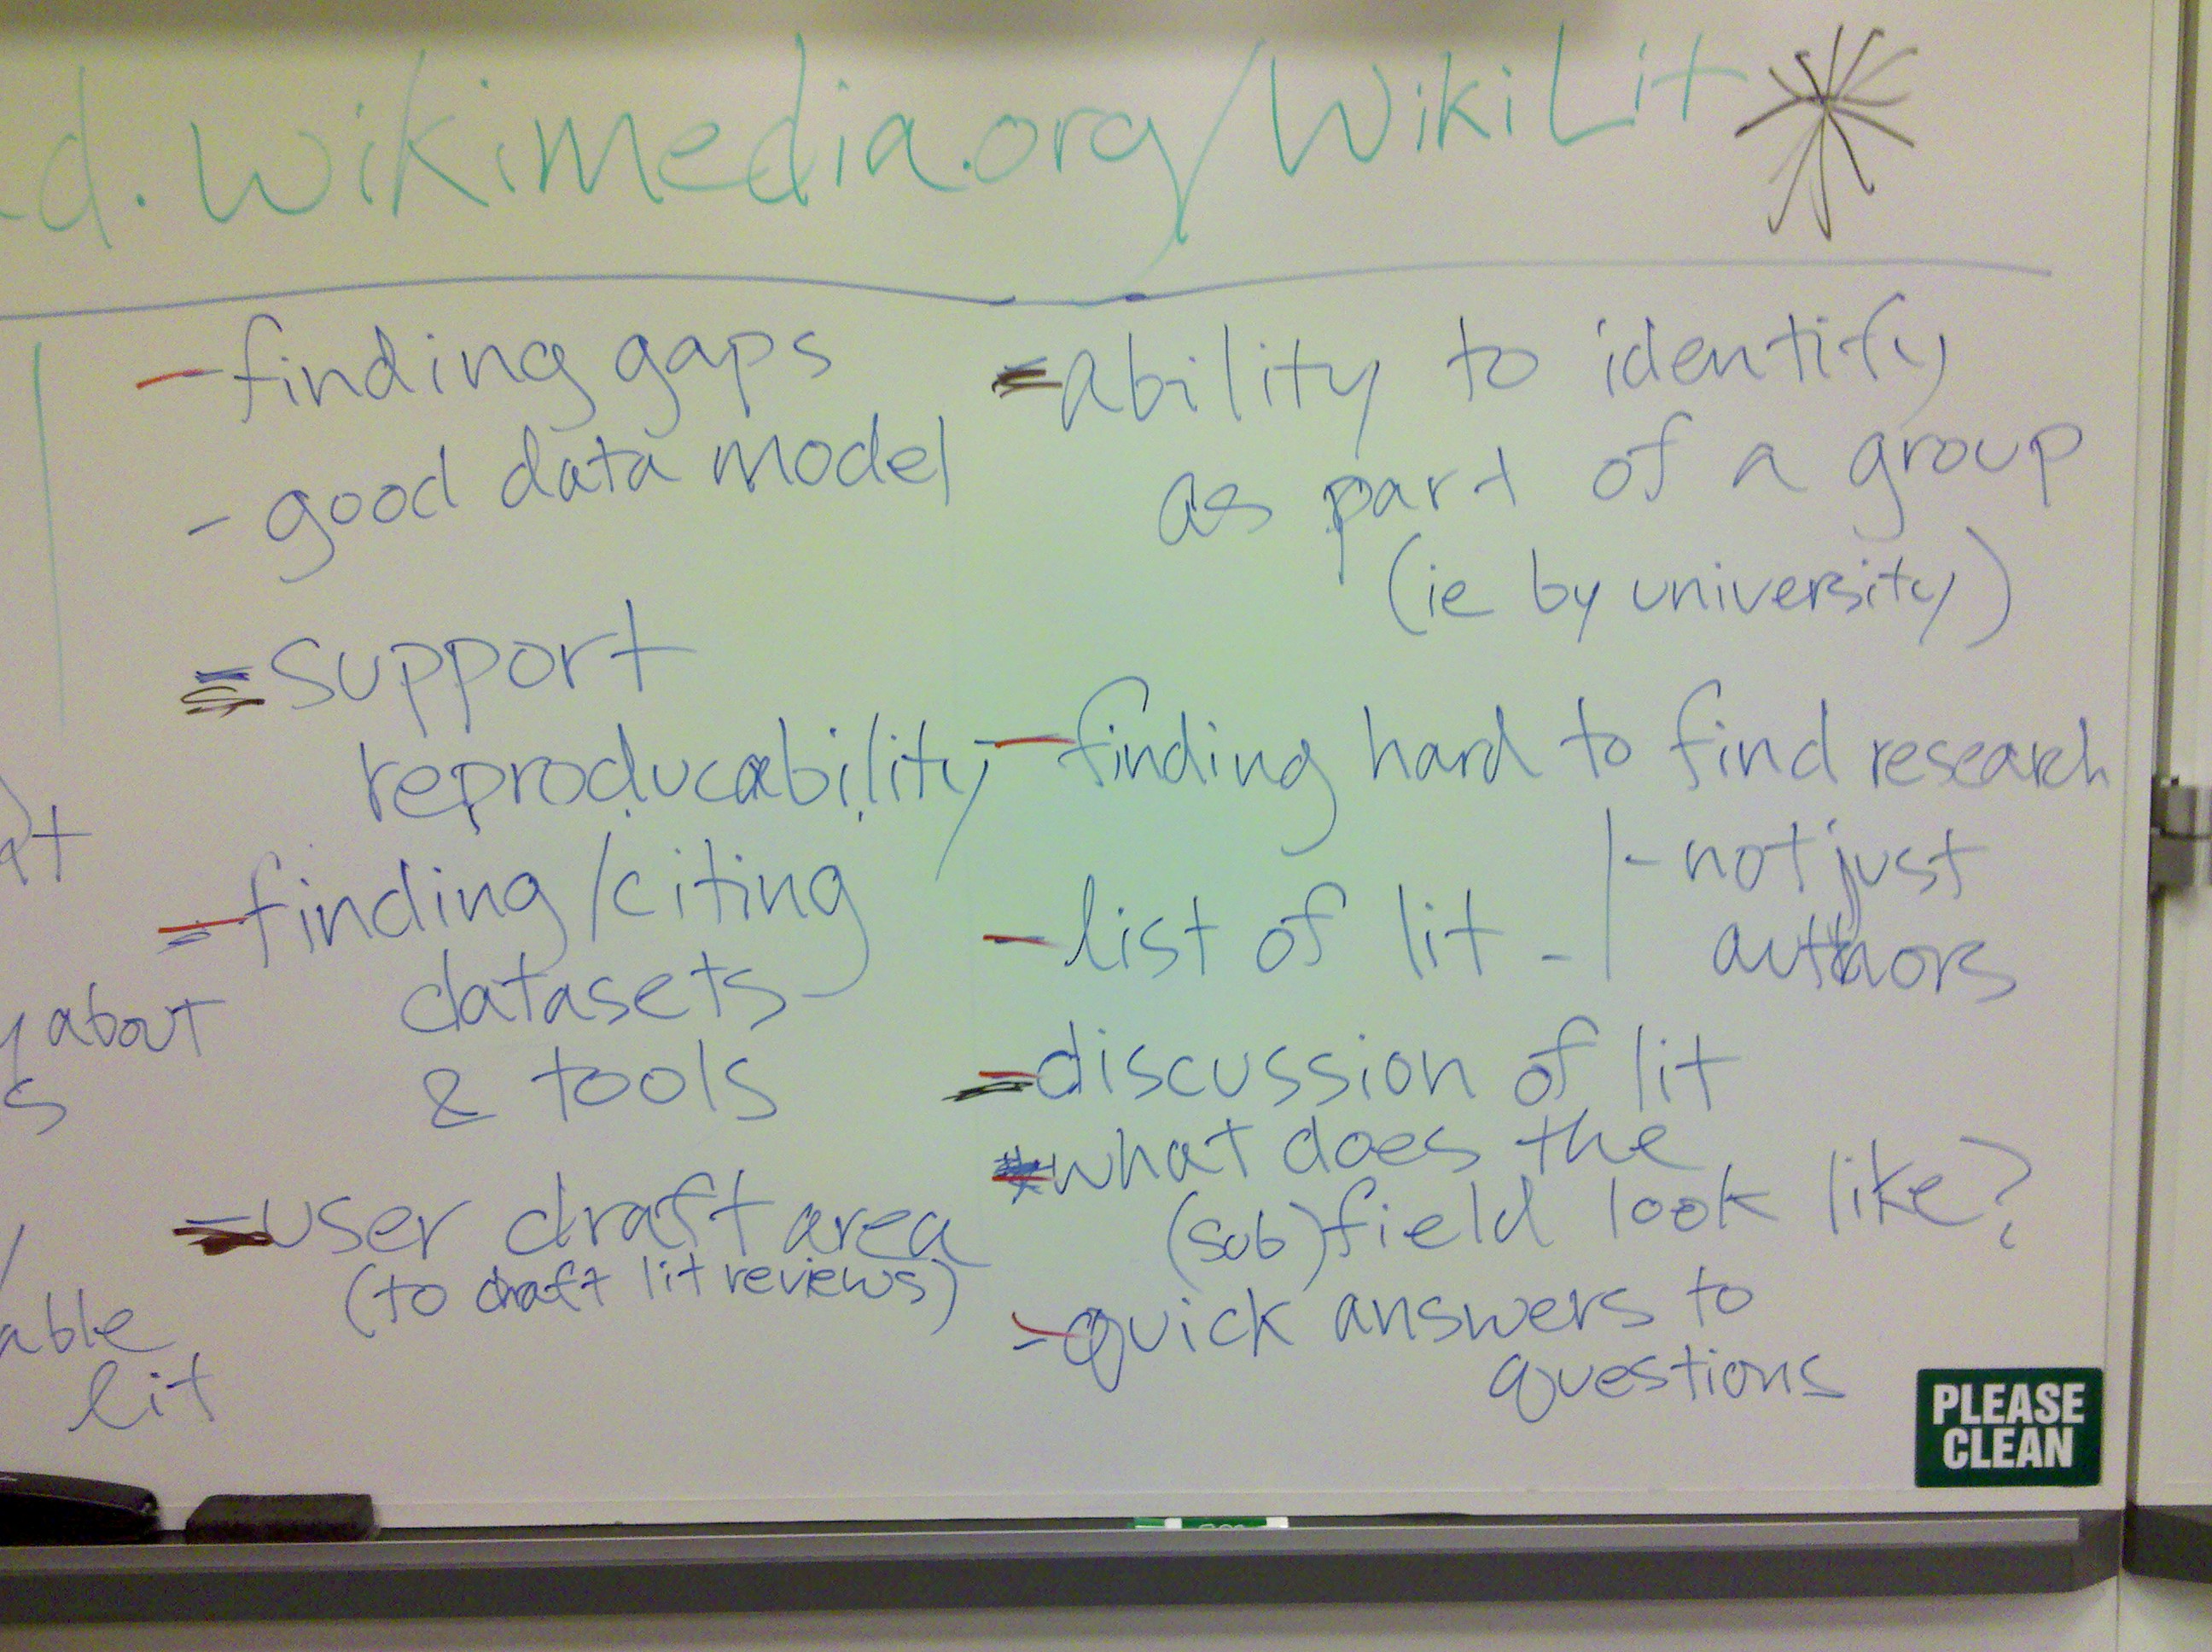 d.wikimedia.org/WikiLit
at
y about
s
able
lit
- finding gaps
- good data model
= support
reproducability
- finding/citing
datasets
& tools
= user draft area
(to draft lit reviews)
= ability to identify
as part of a group
(ie by university)
- finding hard to find research
- list of lit - |- not just
authors
= discussion of lit
* what does the
(sub)field look like?
- quick answers to
questions
PLEASE
CLEAN